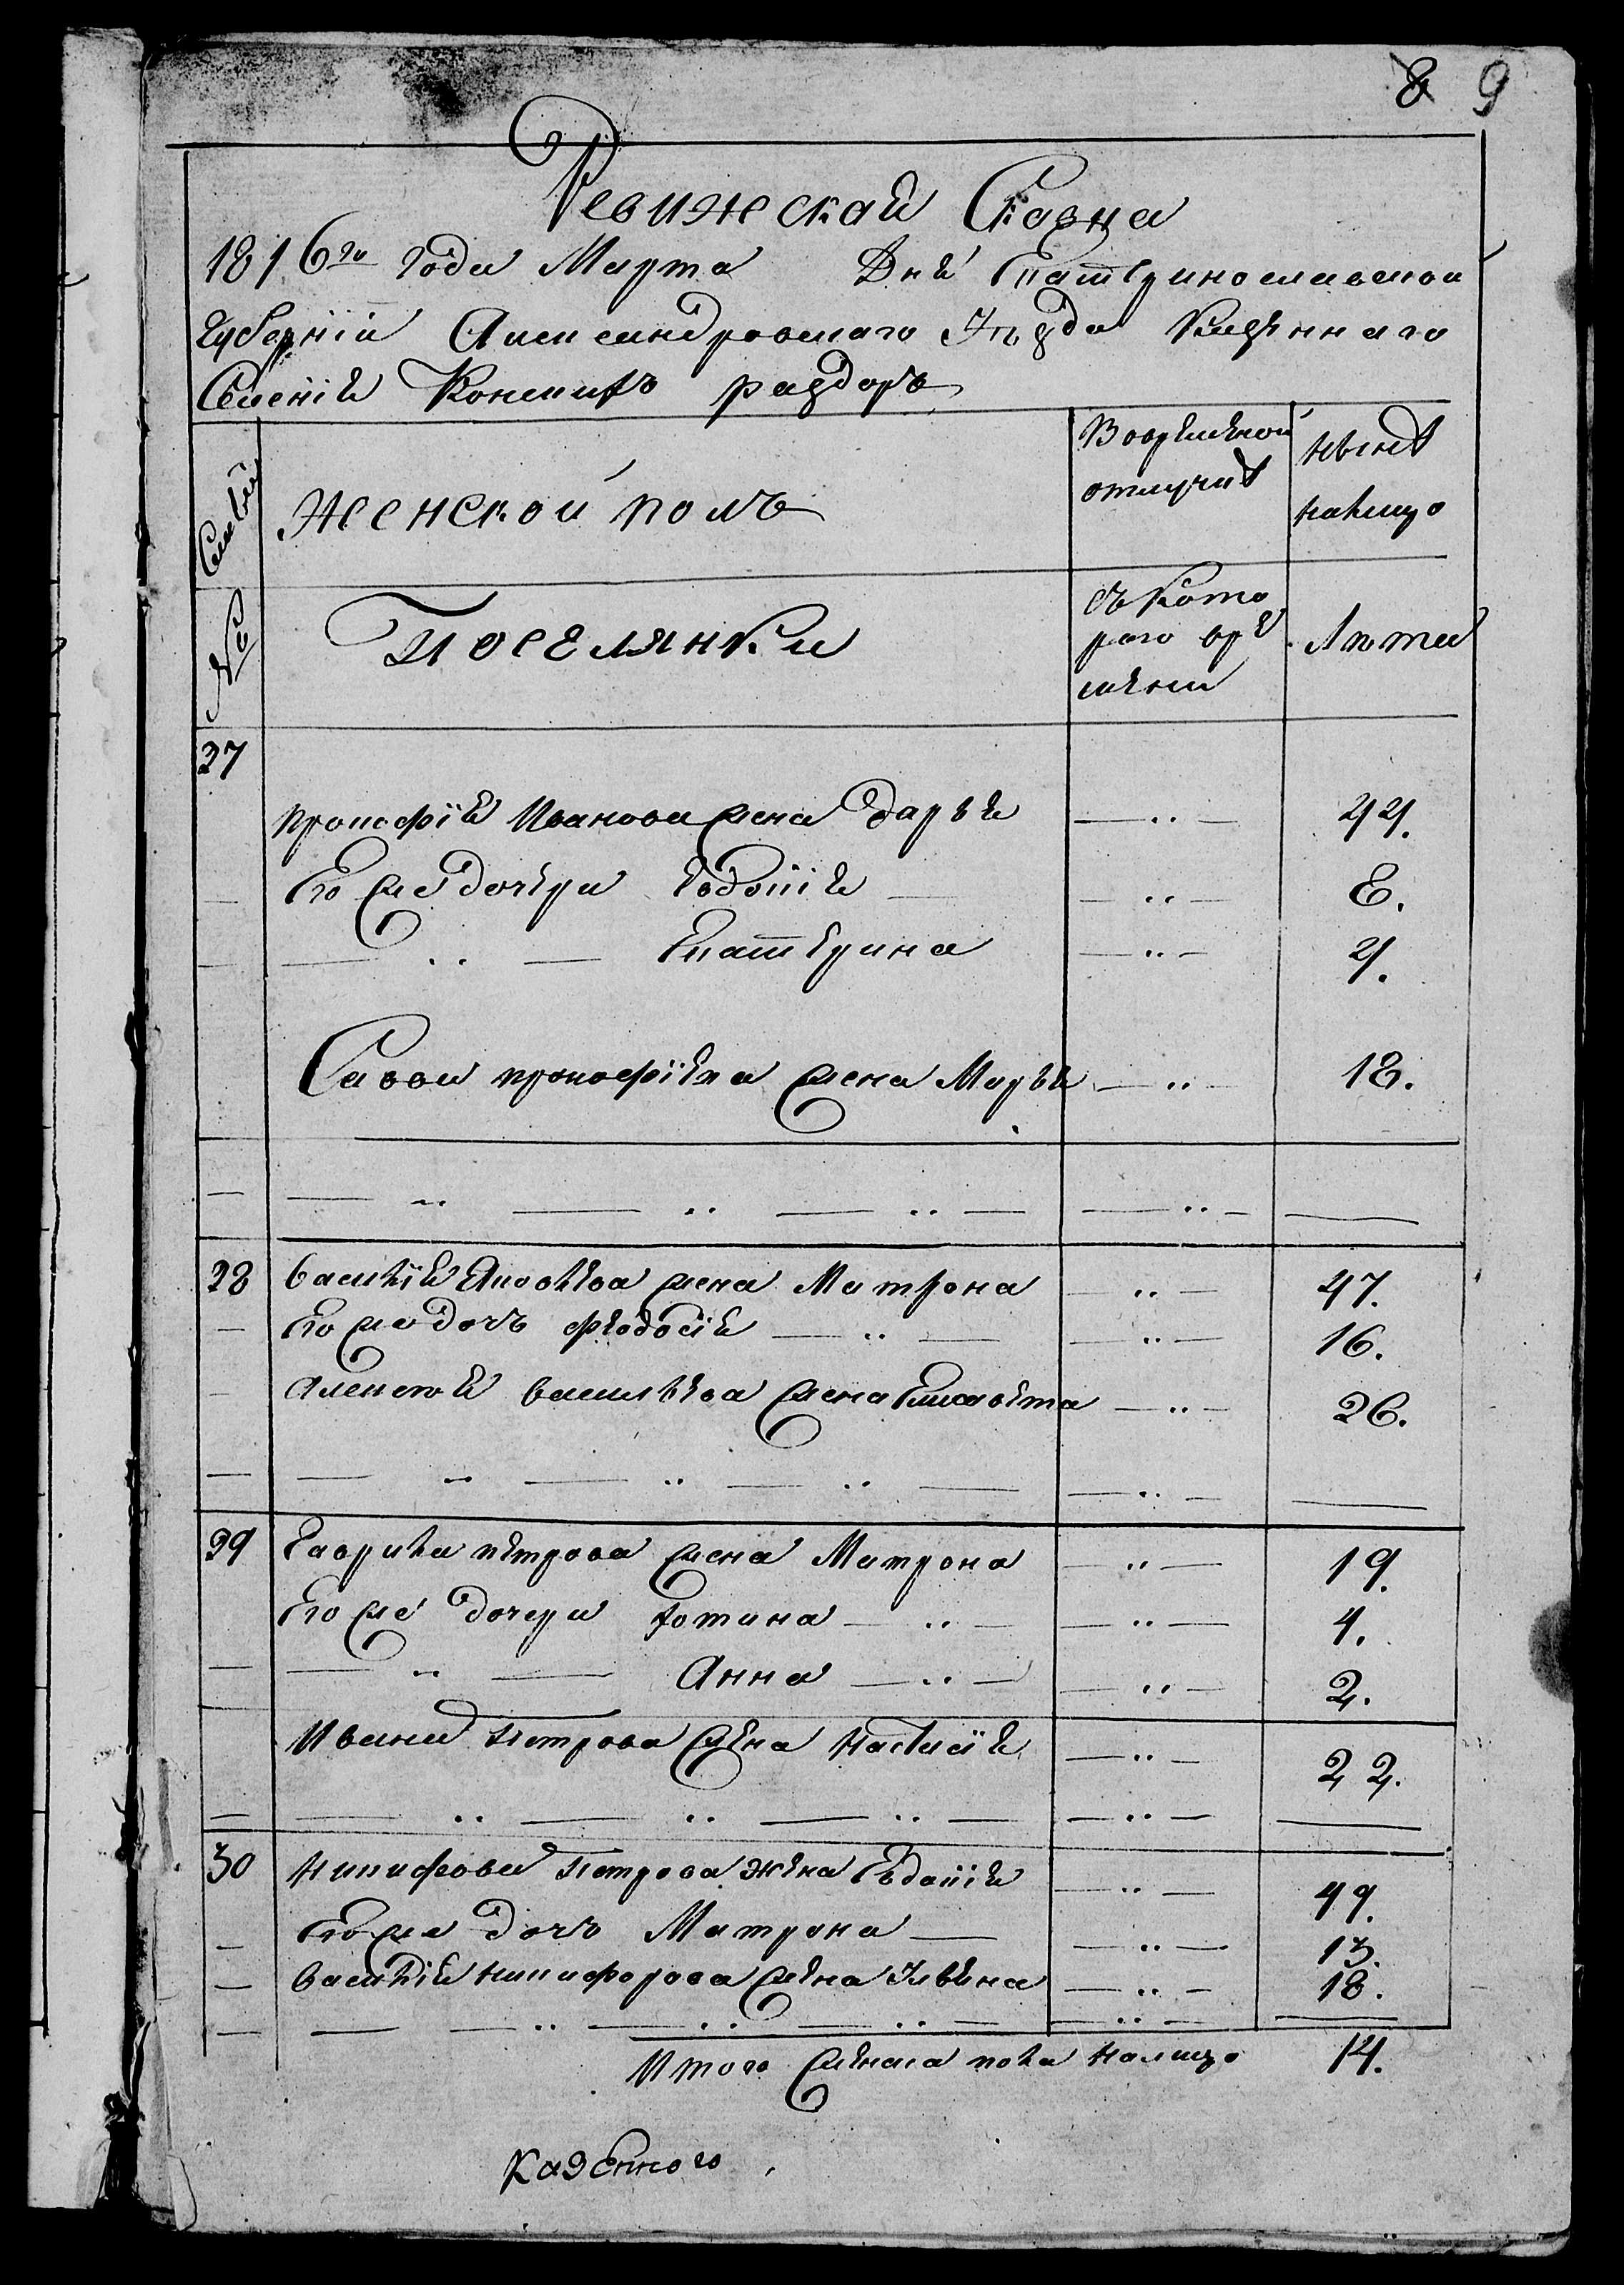 8 9
Ревижская Сказка
1816го года Марта Дня Екатеринославской
Губернии Александровского Уезда Казенного
Селения Конских раздор
№ Семьи
Женской полъ
Во временной отлучке
ныне налицо
Поселянки
съ которого времени
Лета
27
прокофия Иванова жена Дарья — ,, — 44.
Его же дочери Евдокия — — ,, — 8.
— ,, — Екатерина — ,, — 4.
Саввы прокофиева жена Марья — ,, 18.
— — ,, — ,, — ,, — — ,, — —
28 василия Яковлева жена Матрона — ,, — 47.
— Его же дочь Феодосия — ,, — — ,, — 16.
— Алексея васильева жена Елисавета — ,, — 26.
— — ,, — ,, — ,, — — ,, — —
29 Гаврила петрова жена Матрона — ,, — 19.
Его же дочери Фотина — ,, — — ,, — 4.
— — ,, — Анна — ,, — — ,, — 2.
Ивана Петрова жена Настасия — ,, — 22.
— — ,, — ,, — ,, — — ,, — —
30 Никифора Петрова жена Евдокия — ,, — 49.
— Его же дочь Матрона — — ,, — 13.
— василия никифорова жена Ульяна — ,, — 18.
— — — ,, — ,, — ,, — — ,, — —
Итого женска пола налицо 14.
Казенного